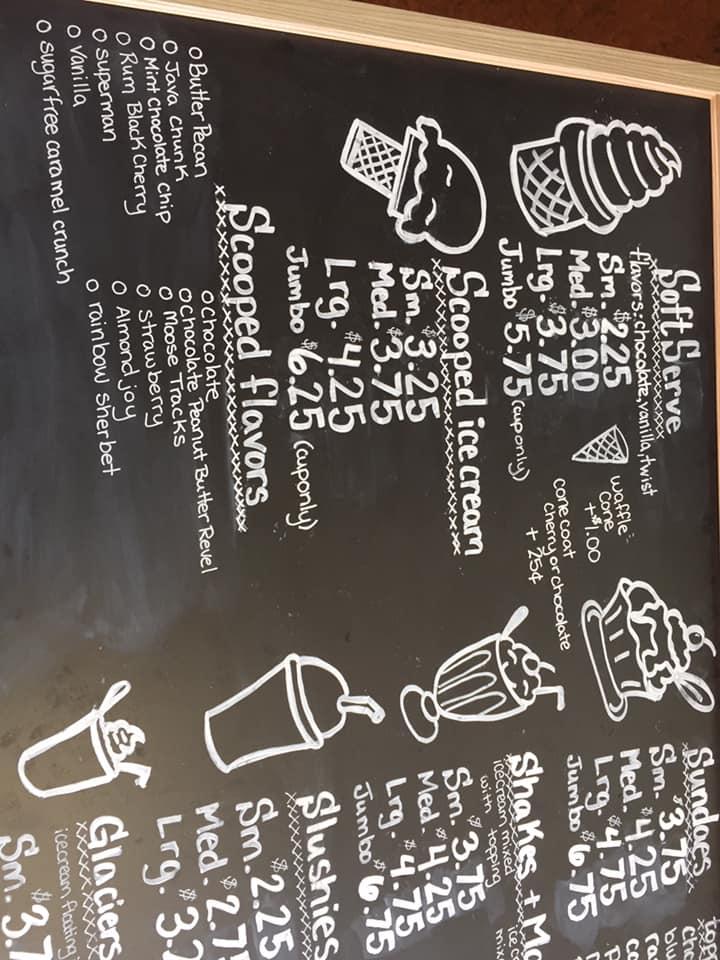 Soft Serve
flavors: chocolate, vanilla, twist
Sm. $2.25
Med. $3.00
Lrg. $3.75
Jumbo $5.75 (cup only)
waffle
Cone
+$1.00
cone coat
cherry or chocolate
+ 25¢
Scooped ice cream
Sm. $3.25
Med. $3.75
Lrg. $4.25
Jumbo $6.25 (cup only)
Scooped flavors
o Butter Pecan
o Java Chunk
o Mint chocolate chip
o Rum Black Cherry
o superman
o vanilla
o sugarfree caramel crunch
o chocolate
o chocolate Peanut Butter Revel
o Moose Tracks
o strawberry
o Almond joy
o rainbow sherbet
Sundaes
Sm. $3.75
Med. $4.25
Lrg. $4.75
Jumbo $6.75
Shakes +
icecream mixed
with topping
Sm. $3.75
Med. $4.25
Lrg. $4.75
Jumbo $6.75
Slushies
Sm. $2.25
Med. $2.7
Lrg. $3.
Glaciers
icecream floating
Sm. $3.7